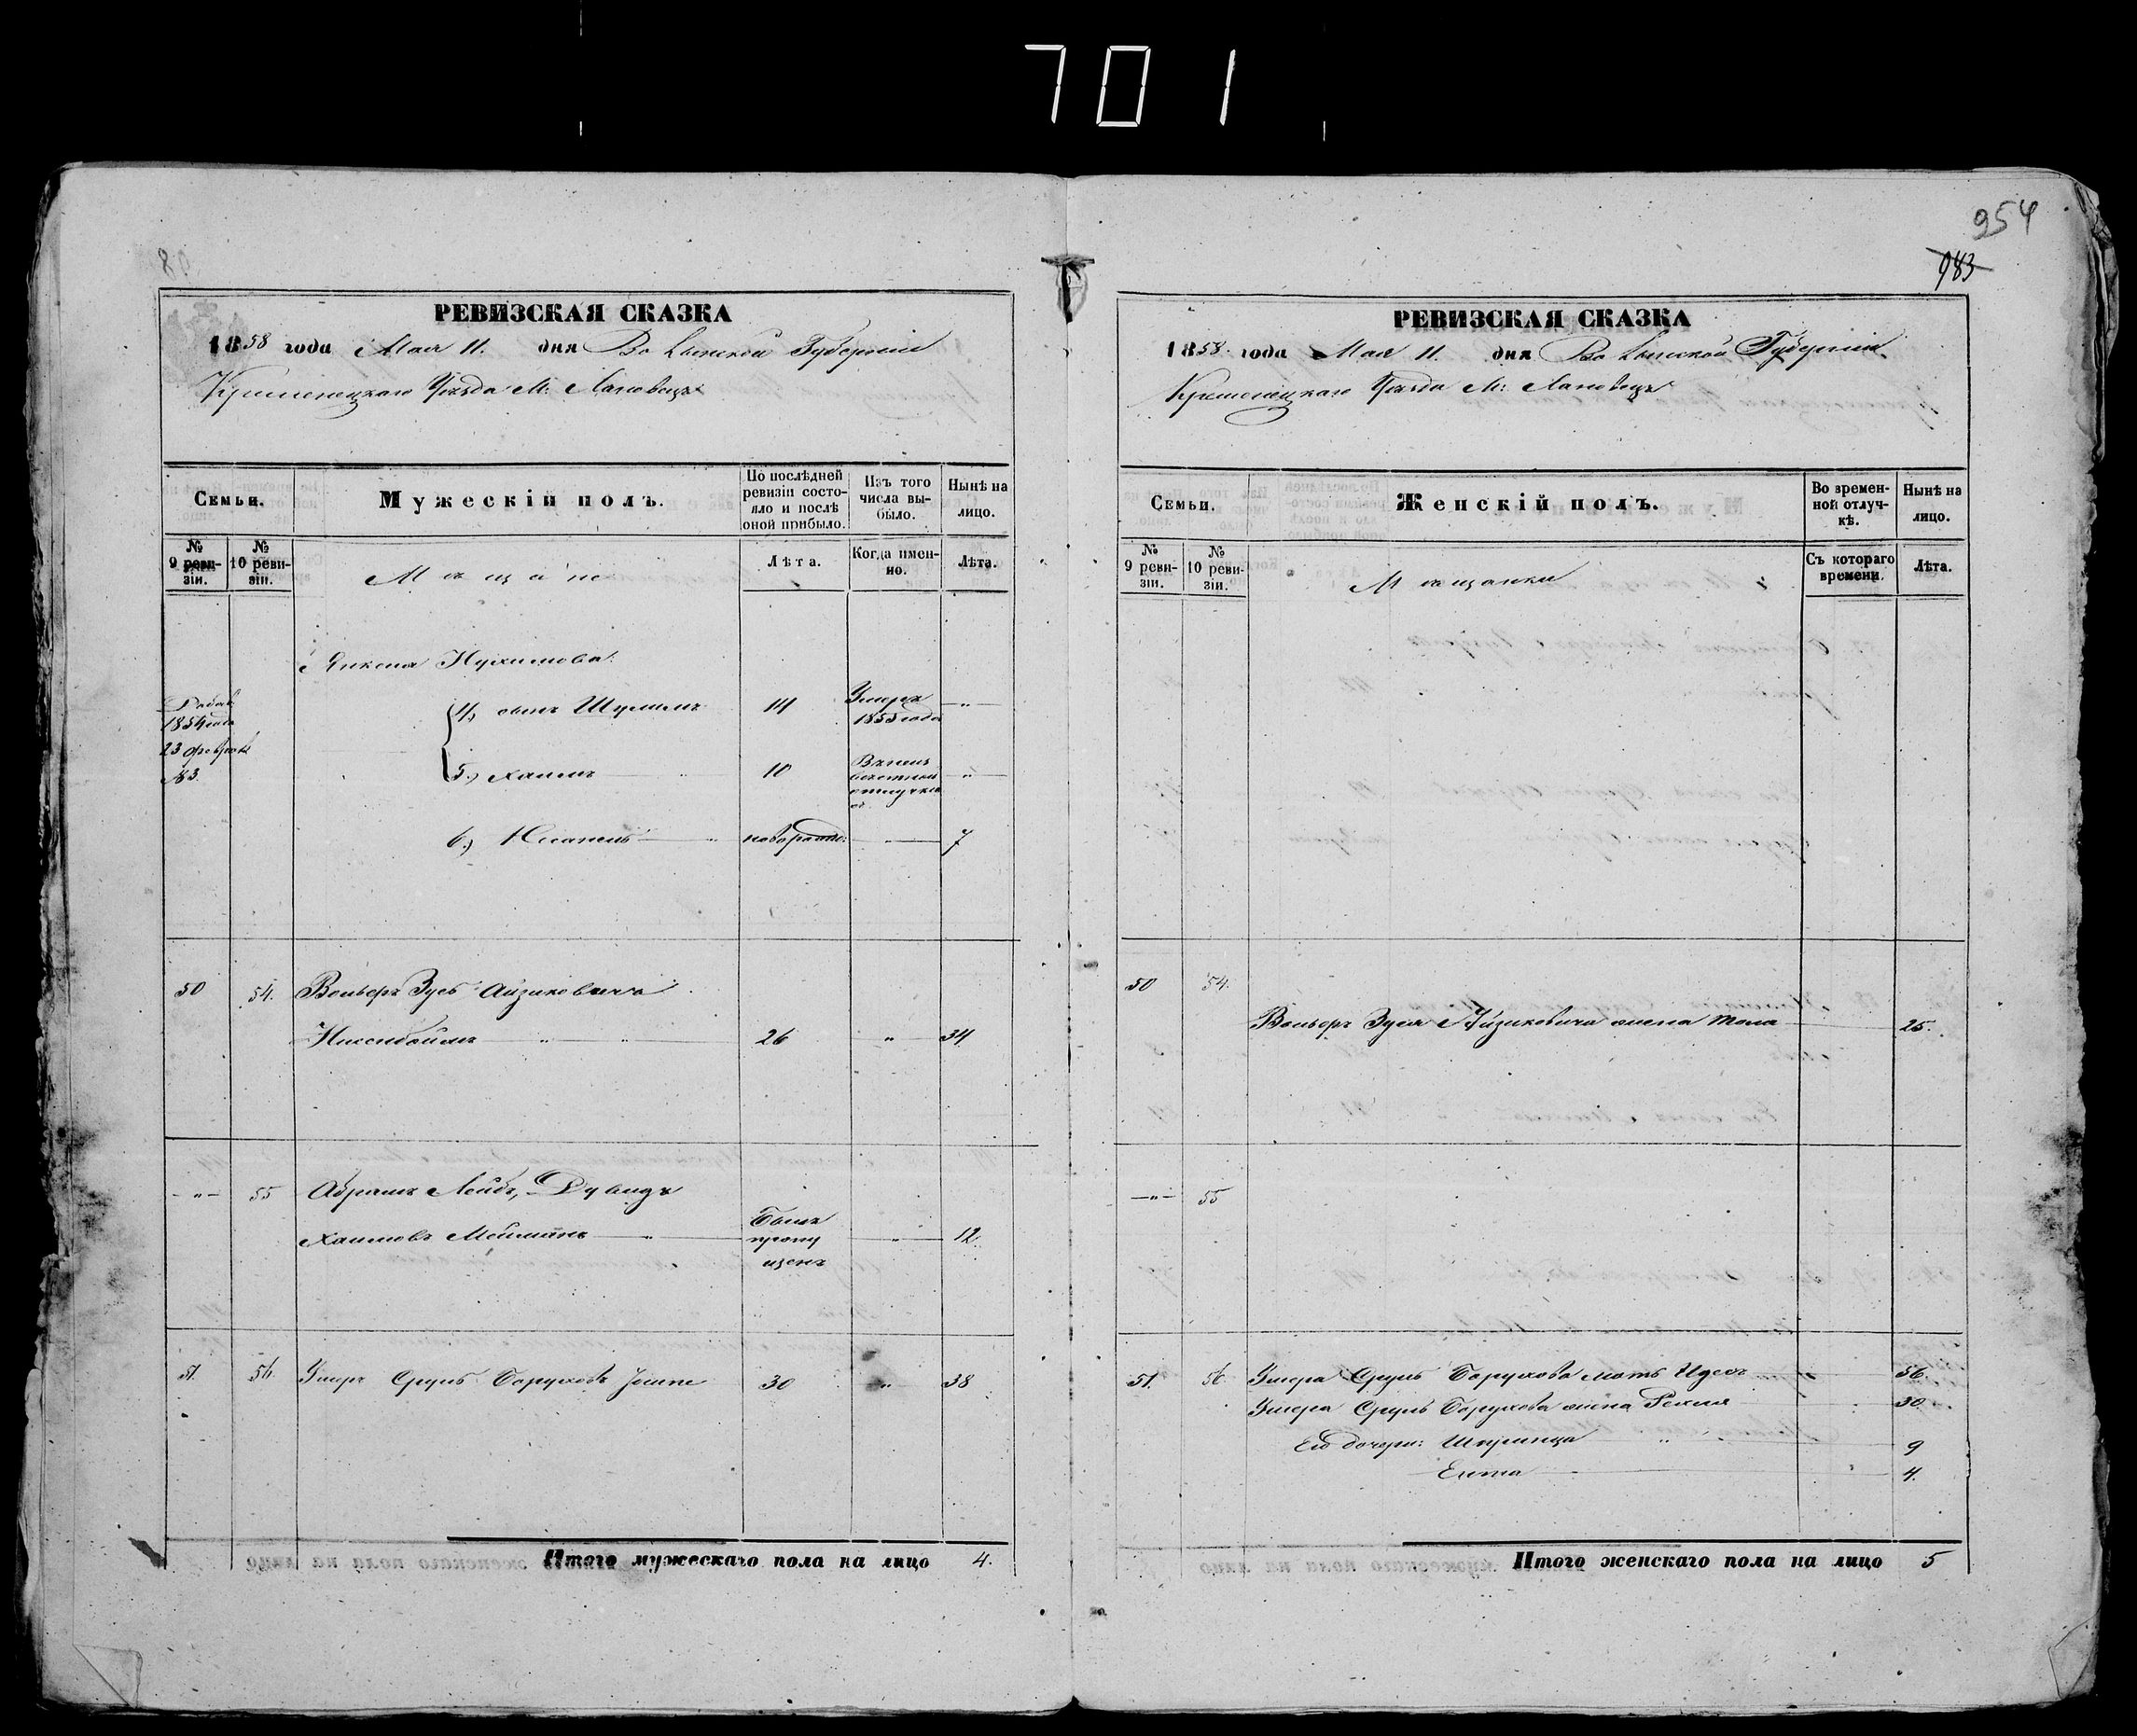 701
954
983
РЕВИЗСКАЯ СКАЗКА
1858 года Мая 11. дня Волынской Губернии
Кременецкаго Уезда М: Лановецъ
Семьи.
Мужескій полъ.
По послѣдней ревизіи состояло и послѣ оной прибыло.
Изъ того числа выбыло.
Нынѣ на лицо.
№ 9 ревизіи.
№ 10 ревизіи.
Мѣщане
Лѣта.
Когда именно.
Лѣта.
Янкеля Нухимова:
Добав. 1854 года 23 февраля №3.
4) сынъ Шулимъ 14 Умеръ 1855 года —"—
5.) Хаимъ " 10 отлучкѣ —"—
6.) " новорожде: —"— 7
50 54. Вольеръ Зусь Айзиковича
" " 26 " 34
—"— 55 Абрамъ Лейбъ, Дувидъ
Хаимовъ " Былъ пропущенъ " 12.
51. 56. Умеръ Сруль Боруховъ 30 " 38
Итого мужескаго пола на лицо 4.
РЕВИЗСКАЯ СКАЗКА
1858 года Мая 11. дня Волынской Губернии.
Кременецкаго Уезда М: Лановецъ
Семьи.
Женскій полъ.
Во временной отлучкѣ.
Нынѣ на лицо.
№ 9 ревизіи.
№ 10 ревизіи.
Мѣщанки
Съ котораго времени.
Лѣта.
50 54.
Вольеръ Зуся Айзиковича жена 25.
—"— 55
51. 56. Умера Сруль Борухова мать Идесъ " 56.
Умера Сруль Борухова жена Рехля 30
Его дочери: Шпринца " 9
Ента 4.
Итого женскаго пола на лицо 5